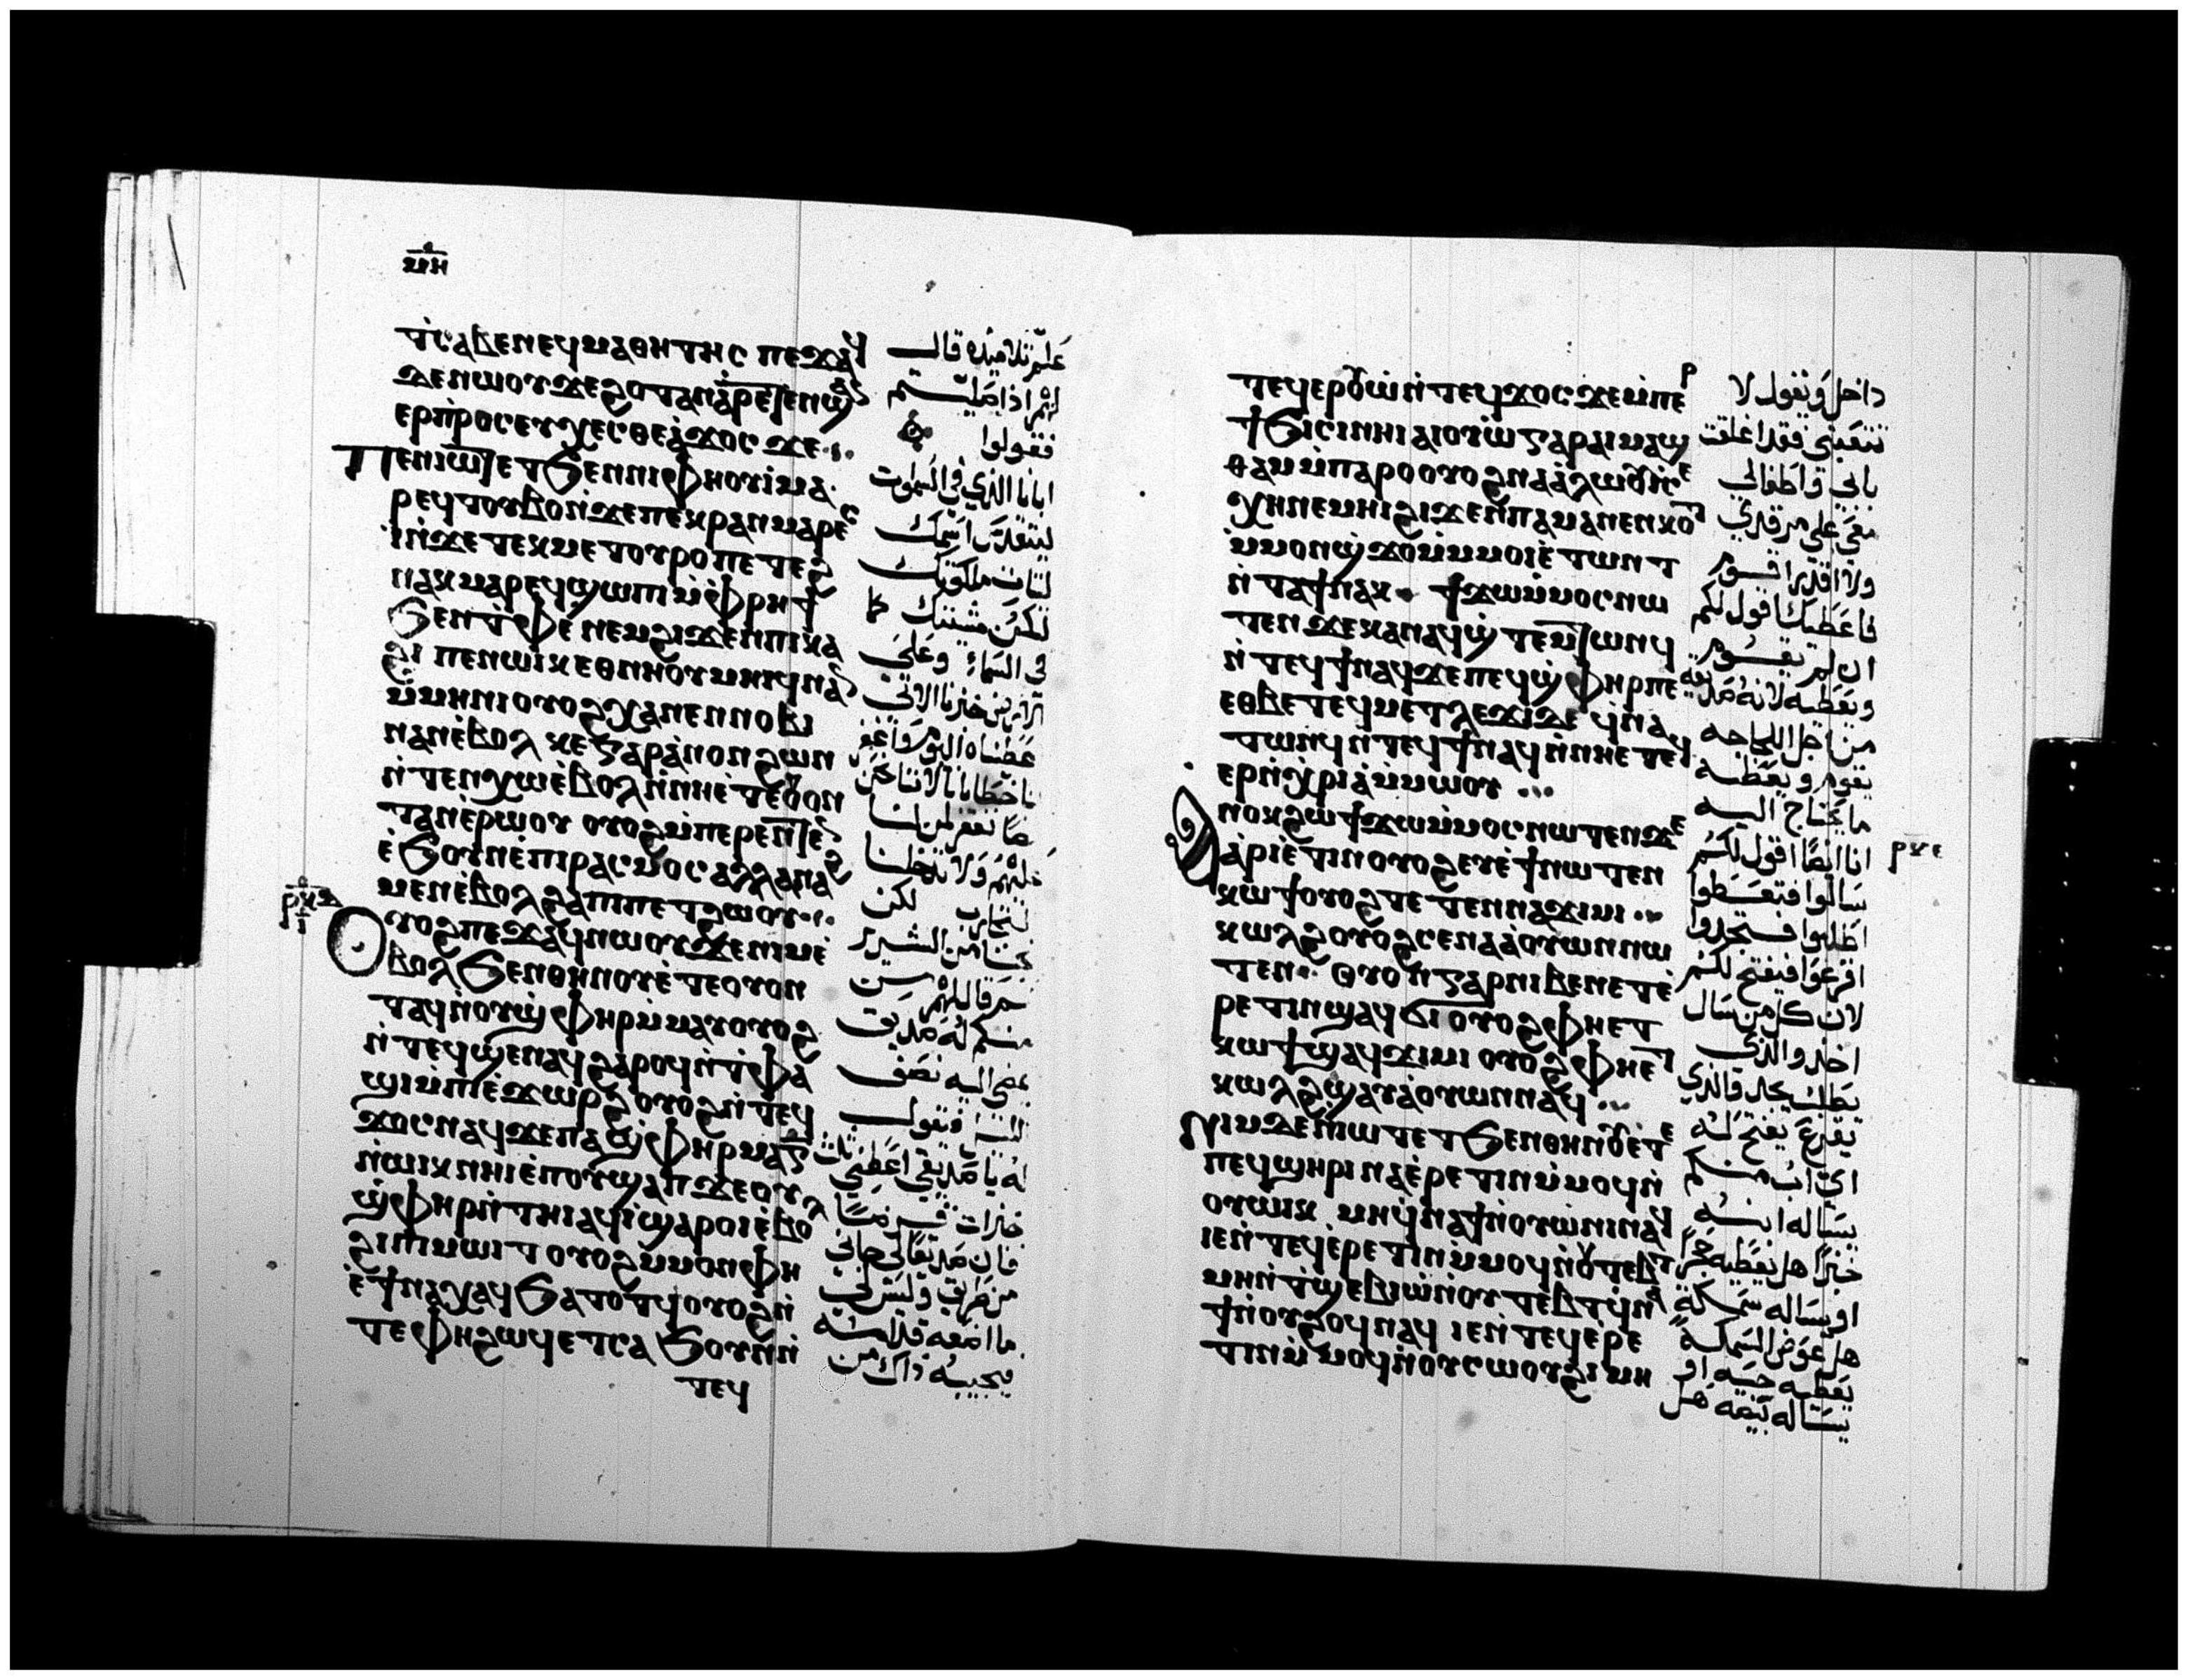 ⲙⲏ
ⲧⲥⲁⲃⲉⲛⲉϥⲙⲁⲑⲏⲧⲏⲥ ⲡⲉϫⲁϥ
ϫⲉⲛⲱⲟⲩϫⲉϩⲟⲧⲁⲛⲁⲣⲉⲧⲉⲛϣⲁⲛ
ⲉⲣⲡⲣⲟⲥⲉⲩⲭⲉⲥⲑⲉⲁϫⲟⲥ ϫⲉ
ⲡⲉⲛⲓⲱⲧⲉⲧϧⲉⲛⲛⲓⲫⲏⲟⲩⲓⲙⲁ
ⲣⲉϥⲧⲟⲩⲃⲟⲛϫⲉⲡⲉⲕⲣⲁⲛⲙⲁⲣⲉⲥ
ⲓⲛϫⲉⲧⲉⲕⲙⲉⲧⲟⲩⲣⲟⲡⲉⲧⲉϩ
ⲛⲁⲕⲙⲁⲣⲉϥϣⲱⲡⲓⲙⲫⲣⲏϯ
ϧⲉⲛⲧⲫⲉ ⲛⲉⲙϩⲓϫⲉⲛⲡⲓⲕⲁ
ϩⲓ ⲡⲉⲛⲱⲓⲕⲉⲑⲛⲏⲟⲩⲙⲏⲓϥⲛⲁⲛ
ⲙⲙⲏⲛⲓⲟⲩⲟϩⲭⲁⲛⲉⲛⲛⲟⲃⲓ
ⲛⲁⲛⲉⲃⲟⲗ ⲕⲉⲅⲁⲣⲁⲛⲟⲛϩⲱⲛ
ⲛⲧⲉⲛⲭⲱⲉⲃⲟⲗⲛⲛⲏⲉⲧⲉⲟⲩⲟⲛ
ⲧⲁⲛⲉⲣⲱⲟⲩ ⲟⲩⲟϩⲙⲡⲉⲣⲉⲛⲧⲉⲛ
ⲉϧⲟⲩⲛⲉⲡⲓⲣⲁⲥⲙⲟⲥⲁⲗⲗⲁⲛⲁϩ
ⲙⲉⲛⲉⲃⲟⲗϩⲁⲡⲓⲡⲉⲧϩⲱⲟⲩ
ⲟⲩⲟϩⲡⲉϫⲁϥⲛⲱⲟⲩϫⲉⲛⲓⲙⲉ
ⲃⲟⲗϧⲉⲛⲑⲏⲛⲟⲩⲉⲧⲉⲟⲩⲟⲛ
ⲧⲁϥⲛⲟⲩϣⲫⲏⲣⲙⲙⲁⲩⲟⲩⲟϩ
ⲛⲧⲉϥϣⲉⲛⲁϥϩⲁⲣⲟϥⲛⲧⲫⲁ
ϣⲓⲙⲡⲓⲉϫⲱⲣϩⲟⲩⲟϩⲛⲧⲉϥ
ϫⲟⲥⲛⲁϥϫⲉⲡⲁϣⲫⲏⲣⲙⲁⲅ
ⲛⲱⲓⲕⲛⲏⲓⲉⲡⲟⲩϣⲁⲡϫⲉⲟⲩ
ϣⲫⲏⲣⲛⲧⲏⲓⲁϥⲓϣⲁⲣⲟⲓⲉⲃⲟⲗ
ϩⲓⲡⲓⲙⲱⲓⲧ ⲟⲩⲟϩⲙⲙⲟⲛⲫⲏ
ⲉϯⲛⲁⲭⲁϥϧⲁⲧⲟⲧϥⲟⲩⲟϩⲛ
ⲧⲉⲫⲏϩⲱϥⲉⲧⲥⲁϧⲟⲩⲛⲛ
ⲧⲉϥ
علّم تلاميذه قال
لهم اذا صليتم
فقولوا
ابانا الذي في السموت
ليتقدس اسمك
لتات ملكوتك
لتكن مشيتك كما
في السماء وعلى
نجنا من الشرير
ثم قال لهم من
منكم له صديق
يمضي اليه نصف
الليل فيقول
له يا صديقي اعطني ثلاث
فان صديقا لي جاني
من طريق وليس لي
فيجيبه ذاك من
ⲧⲉϥⲉⲣⲟⲩⲱⲛⲧⲉϥϫⲟⲥϫⲉⲙⲡⲉⲣ
ϯϧⲓⲥⲓⲛⲏⲓ ⲁⲓⲟⲩⲱ ⲅⲁⲣⲁⲓⲙⲁϣ
ⲑⲁⲙⲙⲡⲁⲣⲟⲟⲩⲟϩⲛⲁⲁⲗⲱⲟⲩⲓⲥⲉ
ⲭⲏⲛⲉⲙⲏⲓϩⲓϫⲉⲛⲡⲁⲙⲁⲛⲉⲛⲕⲟⲧ
ⲙⲙⲟⲛϣϫⲟⲙⲙⲙⲟⲓⲉⲧⲱⲛⲧ
ⲛⲧⲁϯⲛⲁⲕ ϯϫⲱⲙⲙⲟⲥⲛⲱ
ⲧⲉⲛϫⲉⲕⲁⲛⲁϥϣⲧⲉⲙⲧⲱⲛϥ
ⲛⲧⲉϥϯⲛⲁϥϫⲉⲡⲉϥϣⲫⲏⲣⲡⲉ
ⲉⲑⲃⲉⲧⲉϥⲙⲉⲧⲗⲉϫⲓϫⲉ ϥⲛⲁ
ⲧⲱⲛϥⲛⲧⲉϥϯⲛⲁϥⲛⲛⲏⲉⲧⲉϥ
ⲉⲣⲛⲭⲣⲓⲁⲙⲙⲱⲟⲩ
ⲁⲛⲟⲕϩⲱϯϫⲱⲙⲙⲟⲥⲛⲱⲧⲉⲛϫⲉ
ⲁⲣⲓⲉⲧⲓⲛⲟⲩⲟϩⲉⲩⲉϯⲛⲱⲧⲉⲛ
ⲕⲱϯⲟⲩⲟϩⲧⲉⲧⲉⲛⲛⲁϫⲓⲙⲓ
ⲕⲱⲗϩⲟⲩⲟϩⲥⲉⲛⲁⲁⲟⲩⲱⲛⲛⲱ
ⲧⲉⲛ ⲟⲩⲟⲛⲅⲁⲣⲛⲓⲃⲉⲛⲉⲧⲉ
ⲣⲉⲧⲓⲛϣⲁϥϭⲓ ⲟⲩⲟϩⲫⲏⲉⲧ
ⲕⲱϯϣⲁϥϫⲓⲙⲓ ⲟⲩⲟϩⲫⲏⲉⲧ
ⲕⲱⲗϩϣⲁⲩⲁⲟⲩⲱⲛⲛⲁϥ
ⲛⲓⲙϫⲉⲛⲓⲱⲧⲉⲧϧⲉⲛⲑⲏⲛⲟⲩⲉⲧⲉ
ⲡⲉϥϣⲏⲣⲓ ⲛⲁⲉⲣⲉⲧⲓⲛⲙⲙⲟϥⲛ
ⲟⲩⲱⲓⲕ ⲙⲏϥⲛⲁϯⲛⲟⲩⲱⲛⲓⲛⲁϥ
ⲓⲉⲛⲧⲉϥⲉⲣⲉⲧⲓⲛⲙⲙⲟϥⲛⲟⲩⲧⲉⲃⲧ
ⲙⲏⲛⲧϣⲉⲃⲓⲱⲛⲟⲩⲧⲉⲃⲧϥⲛⲁ
ϯⲛⲟⲩϩⲟϥⲛⲁϥ ⲓⲉⲛⲧⲉϥⲉⲣⲉ
ⲧⲓⲛⲙⲙⲟϥⲛⲟⲩⲥⲱⲟⲩϩⲓⲙⲏ
داخل ويقول لا
تتعبني فقد اغلقت
بابي واطفالي
معي على مرقدي
ولا اقدر اقوم
فاعطيك اقول لكم
ان لم يقوم
من اجل اللجاجه
يقوم ويعطيه
ما يحتاج اليه
انا ايضا اقول لكم
سالوا فتعطوا
اطلبوا فتجدوا
اقرعوا فيفتح لكم
لان كل من سال
اخذ والذي
يطلب يجد والذي
يقرع يفتح له
اي اب منكم
يساله ابنه
خبزا هل يعطيه حجرا
او يساله سمكة
هل عوض السمكة
يعطيه حيه او
يساله بيضه هل
ⲣⲕⲉ